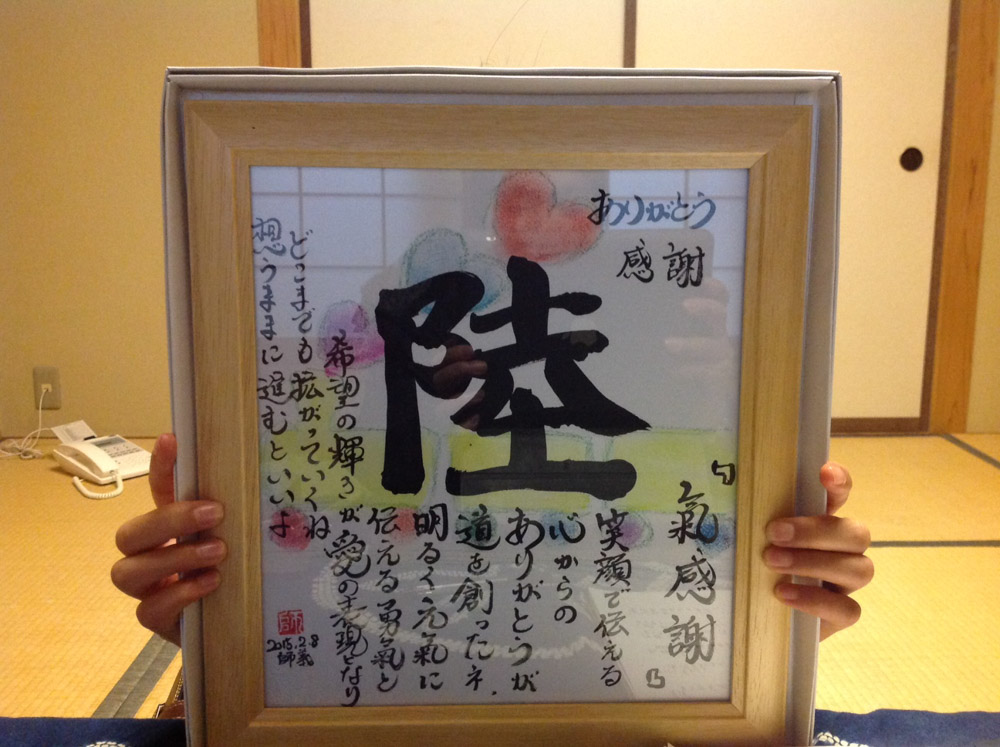 ありがとう
感謝
陸
氣感謝
笑顔で伝える
心からの
ありがとうが
道を創ったネ
明るく元氣に
伝える勇氣と
希望の輝きが愛の表現となり
どこまでも拡がっていくね
想うままに進むといいよ
2015.2.8
師氣